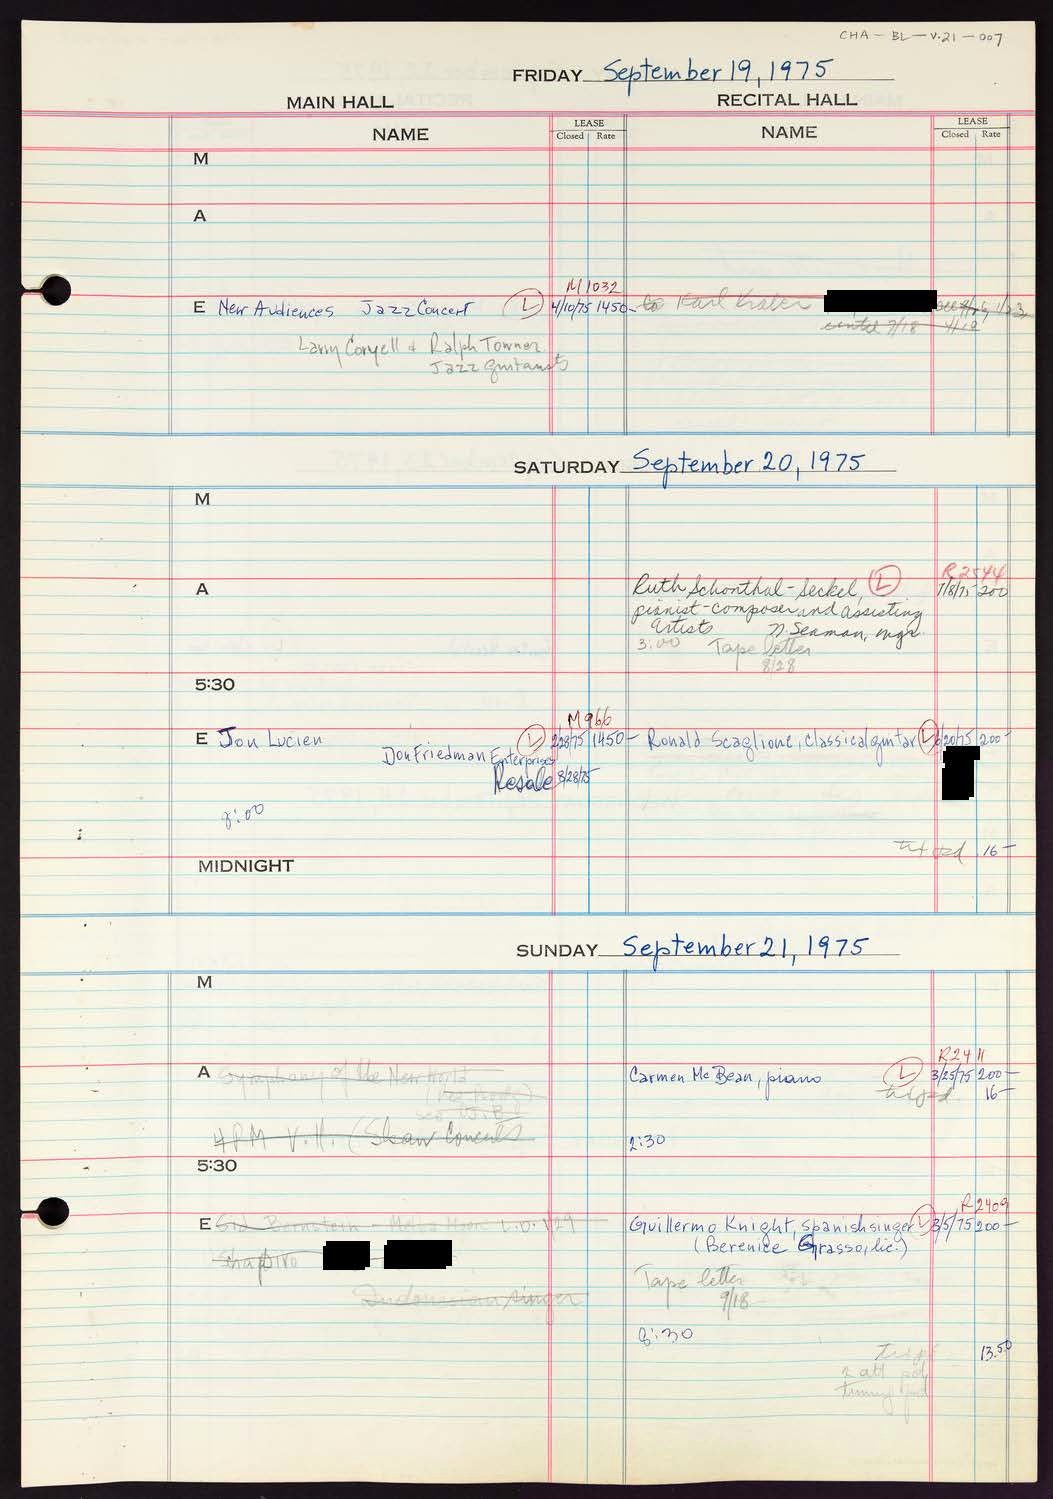 CHA-BL-V.21-007
FRIDAY September 19, 1975
MAIN HALL RECITAL HALL
NAME LEASE Closed Rate NAME LEASE Closed Rate
M
A
M1032
E New Audiences Jazz Concert L 4/10/75 1450- to Karl Kraber
Larry Coryell & Ralph Towner
Jazz guitarists
SATURDAY September 20, 1975
M
R2544
A Ruth Schonthal-Seckel, L 7/8/75 200
pianist-composer and assisting
artists N. Seaman, mgr.
3:00 Tape letter
8/28
5:30
M966
E Jon Lucien L 2/28/75 1450- Ronald Scaglione, classical guitar L 6/20/75 200-
Don Friedman Enterprises
Resale 8/28/75
8:00
16-
MIDNIGHT
SUNDAY September 21, 1975
M
R2411
A Symphony of the New World Carmen McBean, piano L 3/25/75 200-
16-
4PM V.H. (Shaw Concerts
2:30
5:30
R2409
E Sid Bernstein - Guillermo Knight, Spanish singer L 3/5/75 200-
Shapiro (Berenice Grasso, lic.)
Tape letter
Indonesian singer
9/18
8:30
13.50
2 att pd